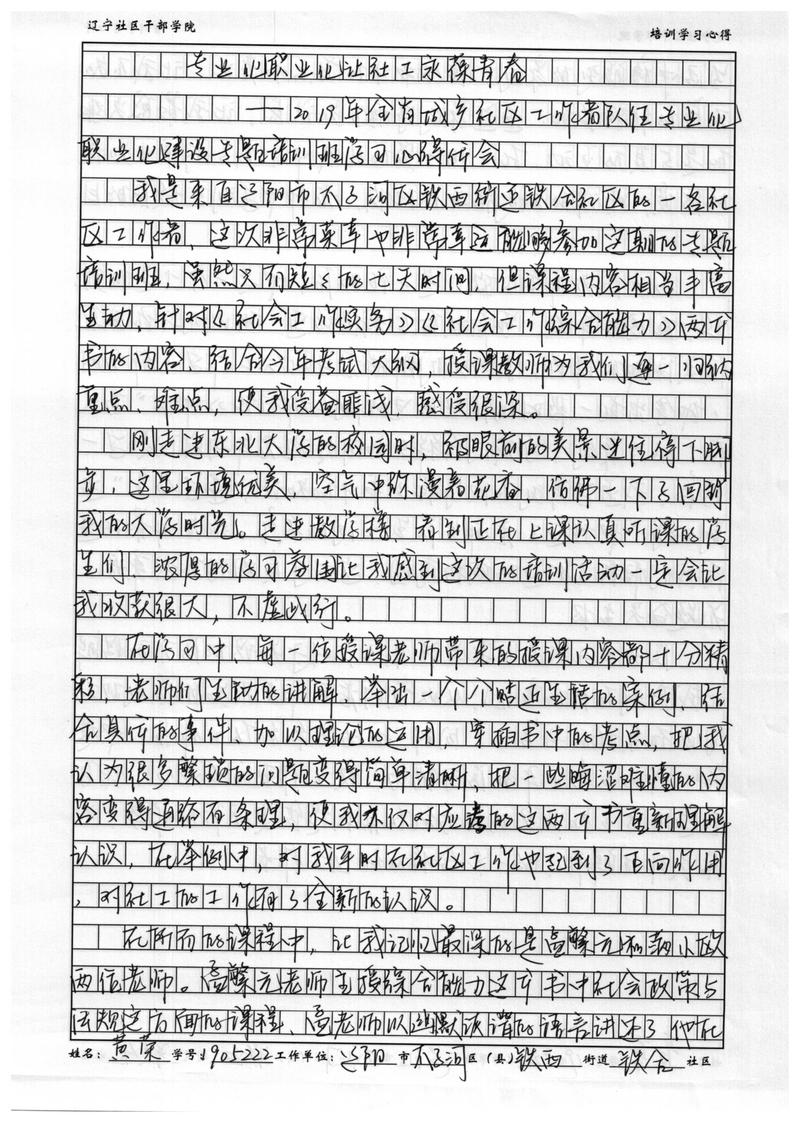 辽宁社区干部学院 培训学习心得
专业化职业化让社工永葆青春
——2019年全省城乡社区工作者队伍专业化
职业化建设专题培训班学习心得体会
我是来自辽阳市太子河区铁西街道铁合社区的一名社
区工作者,这次非常荣幸也非常幸运能够参加这期的专题
培训班,虽然只有短短的七天时间,但课程内容相当丰富
生动,针对《社会工作实务》《社会工作综合能力》两本
书的内容,结合今年考试大纲,授课教师为我们逐一归纳
重点、难点,使我受益匪浅,感受很深。
刚走进东北大学的校园时,被眼前的美景迷住停下脚
步,这里环境优美,空气中弥漫着花香,仿佛一下子回到
我的大学时光。走进教学楼,看到正在上课认真听课的学
生们,浓厚的学习氛围让我感到这次的培训活动一定会让
我收获很大,不虚此行。
在学习中,每一位授课老师带来的授课内容都十分精
彩,老师们生动的讲解,举出一个个贴近生活的案例,结
合具体的事件,加以理论的运用,穿插书中的考点,把我
认为很多繁琐的问题变得简单清晰,把一些晦涩难懂的内
容变得通俗有条理,使我不仅对应考的这两本书重新理解
认识,在举例中,对我平时在社区工作也起到了正向作用
,对社工的工作有了全新的认识。
在所有的课程中,让我记忆最深的是孟繁元和韩小欧
两位老师。孟繁元老师主授综合能力这本书中社会政策与
法规这方面的课程,孟老师以幽默诙谐的语言讲述了他在
姓名:黄荣 学号:1905222 工作单位:辽阳 市 太子河 区(县) 铁西 街道 铁合 社区